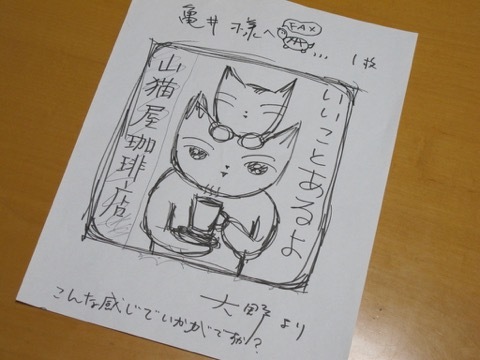 亀井様へ FAX ... 1枚
いいことあるよ
山猫屋珈琲店
大野より
こんな感じでいかがですか?